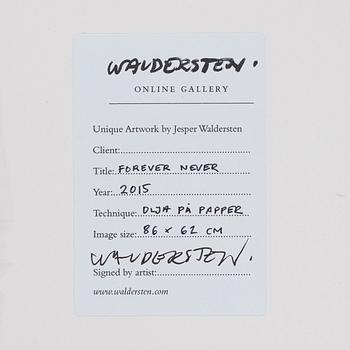 WALDERSTEN.
ONLINE GALLERY
Unique Artwork by Jesper Waldersten
Client:
Title: FOREVER NEVER
Year: 2015
Technique: OLJA PÅ PAPPER
Image size: 86 x 62 CM
WALDERSTEN.
Signed by artist:
www.waldersten.com